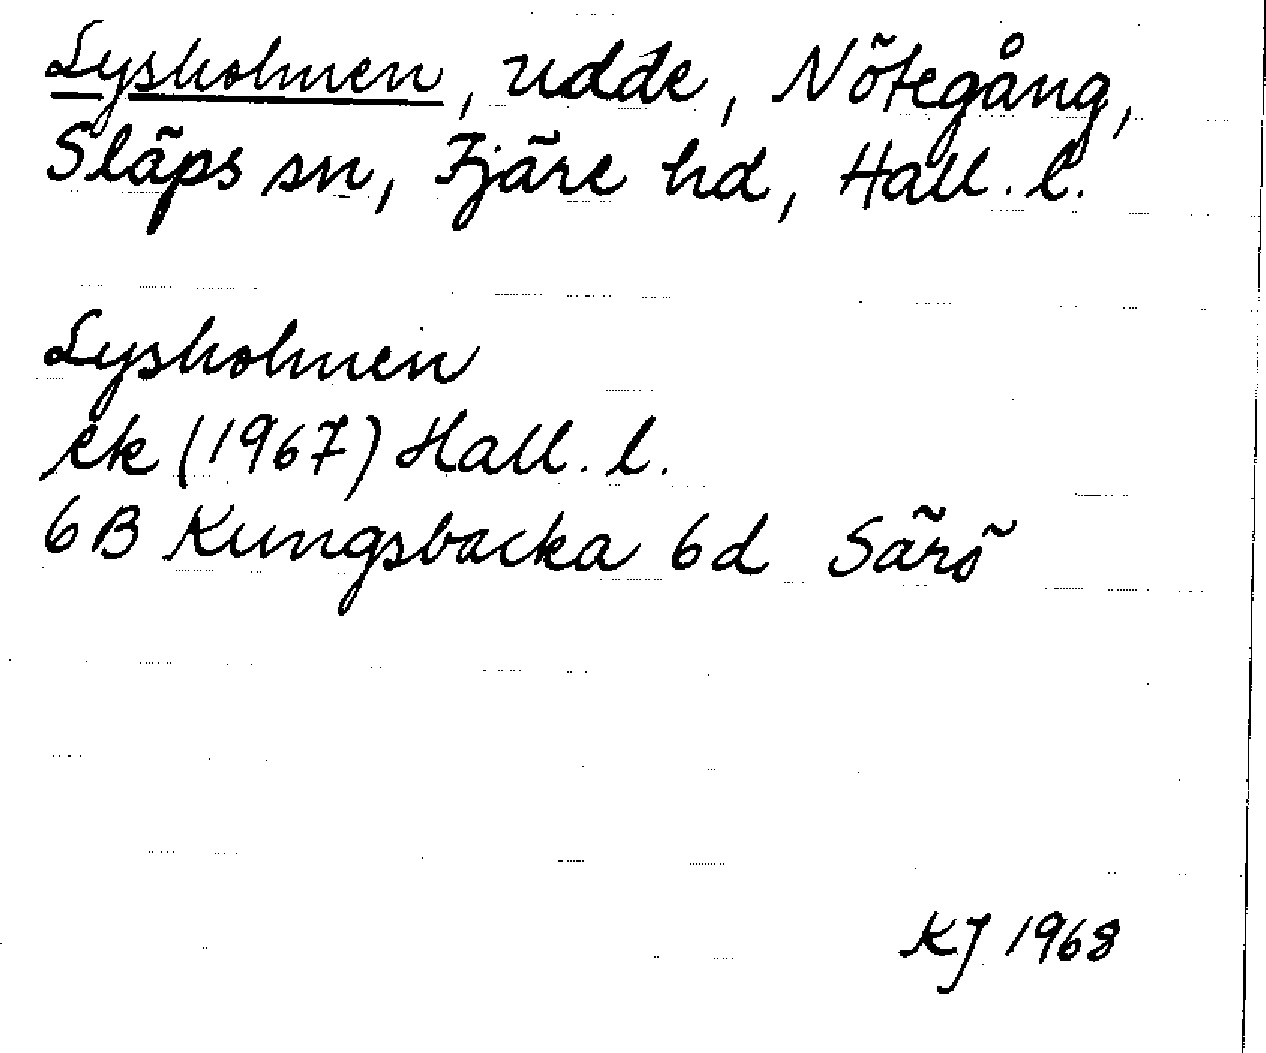 Lysholmen, udde, Nötegång,
Släps sn, Fjäre hd, Hall. l.
Lysholmen
ek (1967) Hall. l.
6B Kungsbacka 6d Särö
KJ 1968